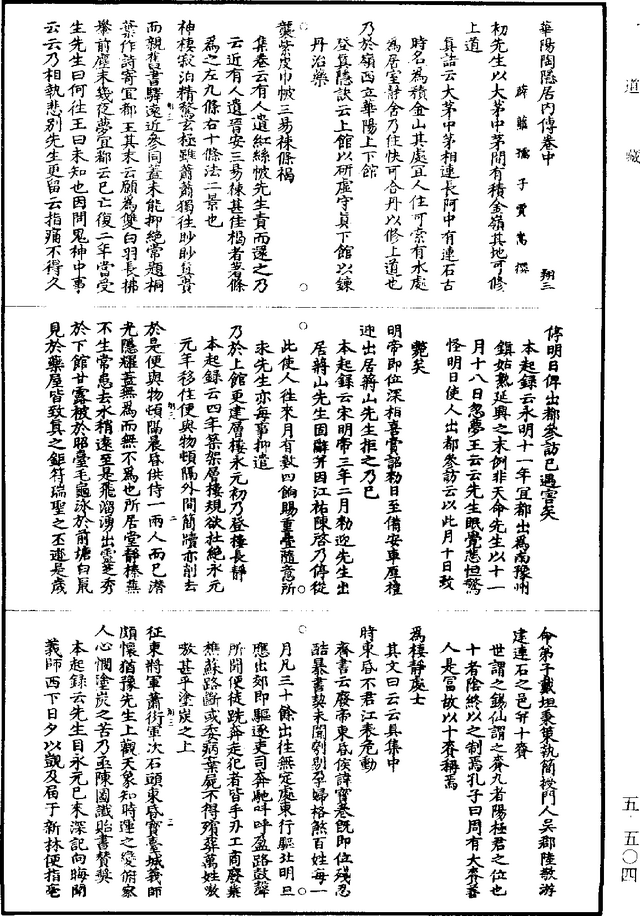 道藏
五·五〇四
華陽陶隱居內傳卷中 翔三
薜蘿孺子賈嵩撰
初先生以大茅中茅間有積金嶺其地可修
上道
真誥云大茅中茅相連長阿中有連石古
時名為積金山其處宜人住可索有水處
為居室靜舍乃佳快可合丹以修上道也
乃於嶺西立華陽上下館
登真隱訣云上館以研虛守真下館以鍊
丹治藥
龔紫皮巾帔三易楝條褐
集卷云有人遺紅絲帔先生責而還之乃
云近有人遺晉安三易楝甚佳褐者著條
為之左九條右十條法二景也
神棲寂泊精騖玄極雖蕭蕭獨往眇眇真貴
而親舊書驛遠近參同蓋未能抑絕常題桐
葉作詩寄宜都王其末云願為雙白羽長拂
輦前塵未幾夜夢宜都云已亡復二年當受
生先生曰何往王曰未知也因問鬼神中事
云云乃相執悲別先生更留云指痛不得久
停明日俾出都參訪已遇害矣
本起錄云永明十一年宜都出為南豫州
鎮姑熟延興之末例非天命先生以十一
月十八日忽夢王云云先生眠覺悲恒驚
怪明日使人出都參訪云以此月十日致
斃矣
明帝即位深相喜賞詔勑日至備安車厚禮
迎出居蔣山先生拒之乃已
本起錄云宋明帝三年二月勑迎先生出
居蔣山先生固辭并因江祏陳啓乃停從
此使人往來月有數四餉賜重疊隨意所
求先生亦每事抑遣
乃於上館更建層樓永元初乃登樓長靜
本起錄云四年築架層樓規欲杜絕永元
元年移住便與物頓隔外間簡牘亦削去
於是便與物頓隔晨昏供侍一兩人而已潛
光隱耀蓋無為而無不為也所居堂靜榛蕪
不生常患去水稍遠至是飛溜湧出靈芝秀
於下館甘露被於昭臺毛龜泳於前塘白鼠
見於藥屋皆致真之鉅符瑞聖之丕迹是歲
命弟子戴坦秉策執簡授門人吳郡陸敬游
建連石之邑并十賚
世謂之錫仙謂之賚九者陽極君之位也
十者陰終以之制焉孔子曰周有大賚善
人是富故以十賚稱焉
為棲靜處士
其文曰云云具集中
時東昏不君江表危動
齊書云廢帝東昏侯諱寶卷既即位殘忍
酷暴書契未聞刳剔孕婦格煞百姓每一
月凡三十餘出往無定處東行驅北明旦
應出郊即驅逐吏司奔馳叫呼盈路鼓聲
所聞便徒跣奔走犯者皆手刃工商廢業
樵蘇路斷或委病棄屍不得殯葬萬姓嗷
嗷甚乎塗炭之上
征東將軍蕭衍軍次石頭東昏寶臺城義師
頗懷猶豫先生上觀天象知時運之變俯察
人心憫塗炭之苦乃亟陳圖讖貽書贊獎
本起錄云先生自永元已來深記向晦聞
義師西下日夕以覬及屆于新林便指毫